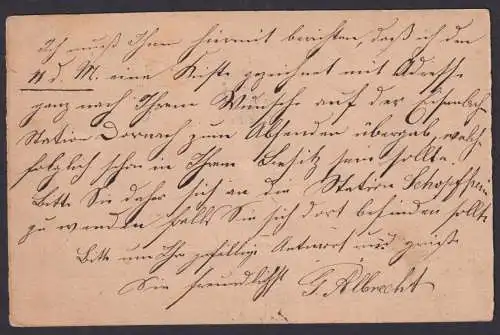 Ich muß Ihnen hiermit berichten, daß ich den
11 d. M. eine Kiste gezeichnet mit Adresse
ganz nach Ihrem Wunsche auf der Eisenbahn
Station Dornach zum Absenden übergab, welche
folglich schon in Ihrem Besitz sein sollte.
Bitte Sie daher sich an die Station Schopfheim
zu wenden falls Sie sich dort befinden sollte
Bitte um Ihr gefällige Antwort und grüßt
Sie freundlichst G. Albrecht